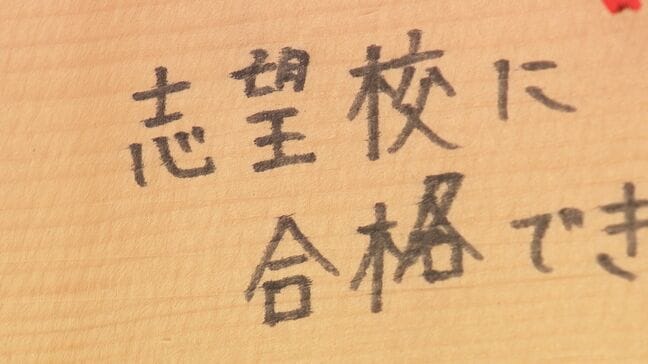 志望校に
合格でき